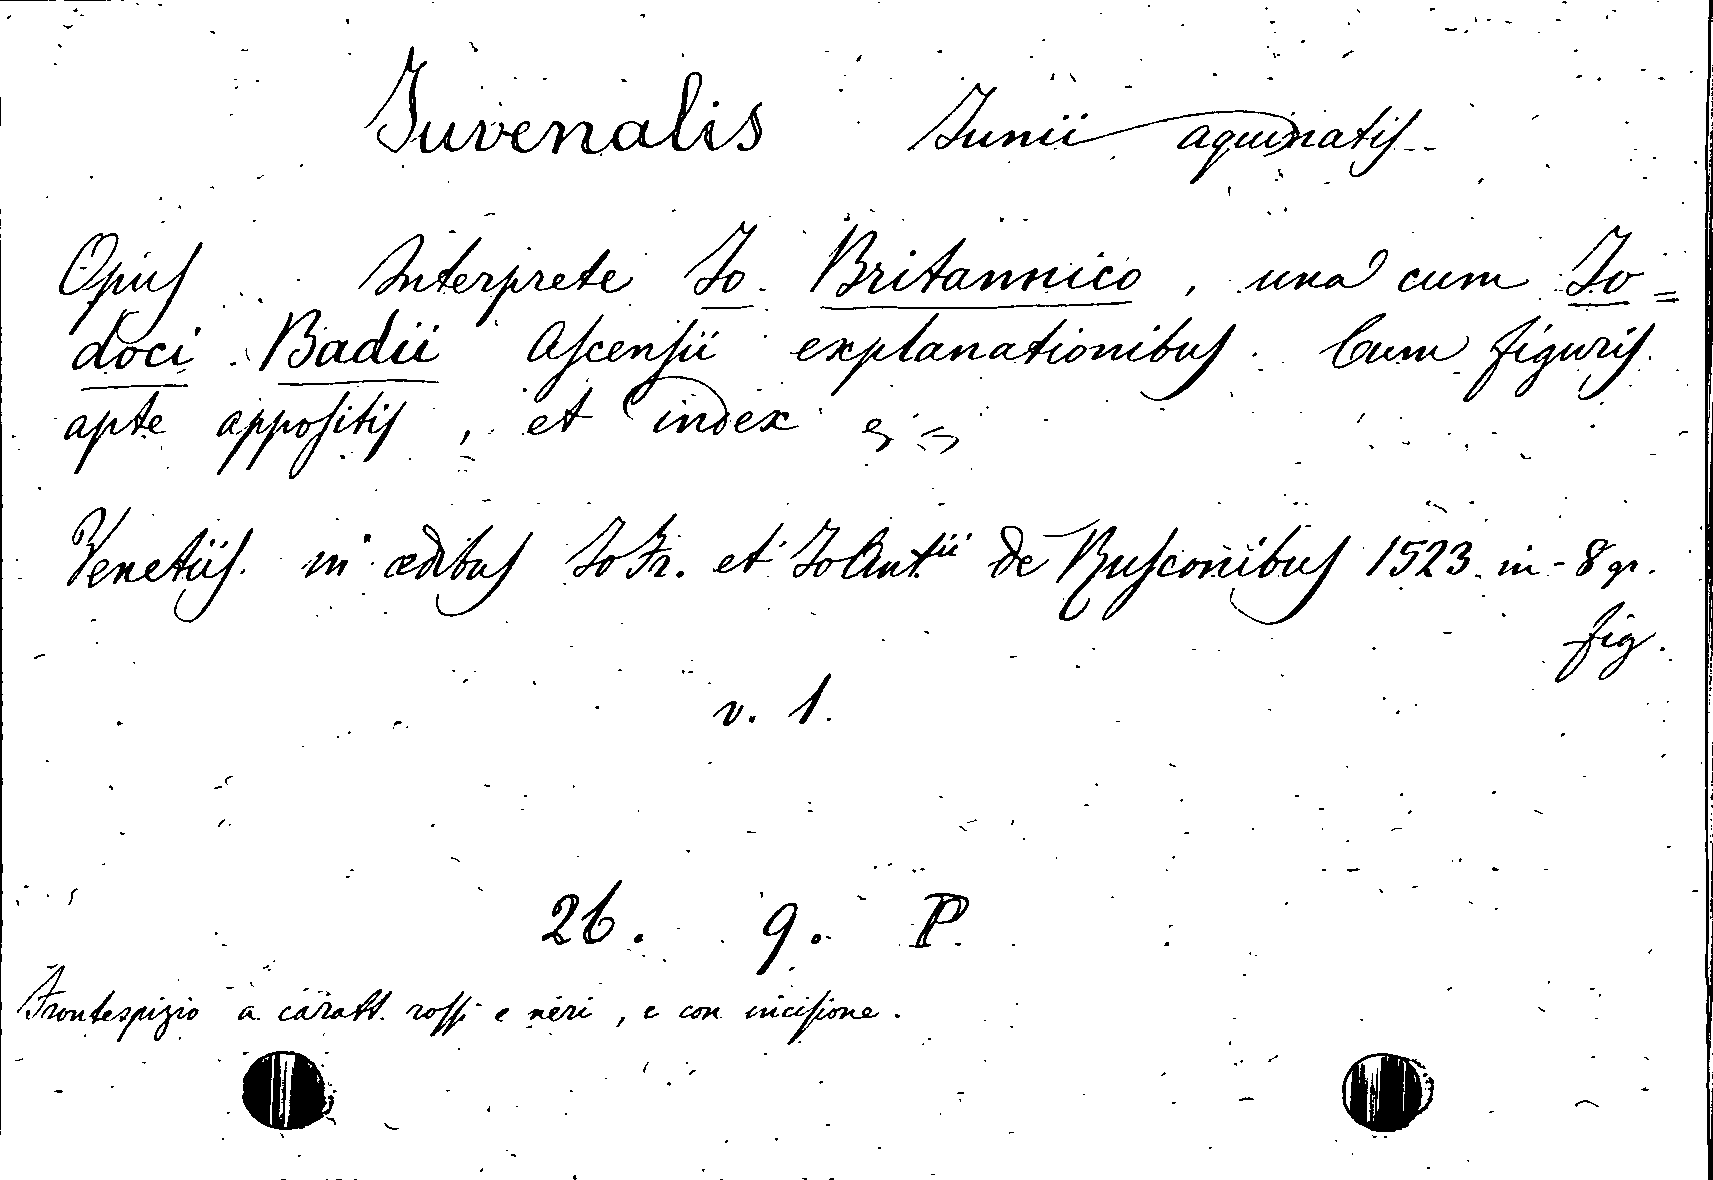 Juvenalis Junii aquinatis
Opus Interprete Jo. Britannico, una cum Jo=
doci Badii Ascensii explanationibus. Cum figuris
apte appositis, et index
Venetiis. in ædibus Jo Fr. et Jo Ant.ii de Rusconibus 1523. in-8 gr.
fig.
v. 1.
26. 9. P.
Frontespizio a caratt. rossi e neri, e con incisione.